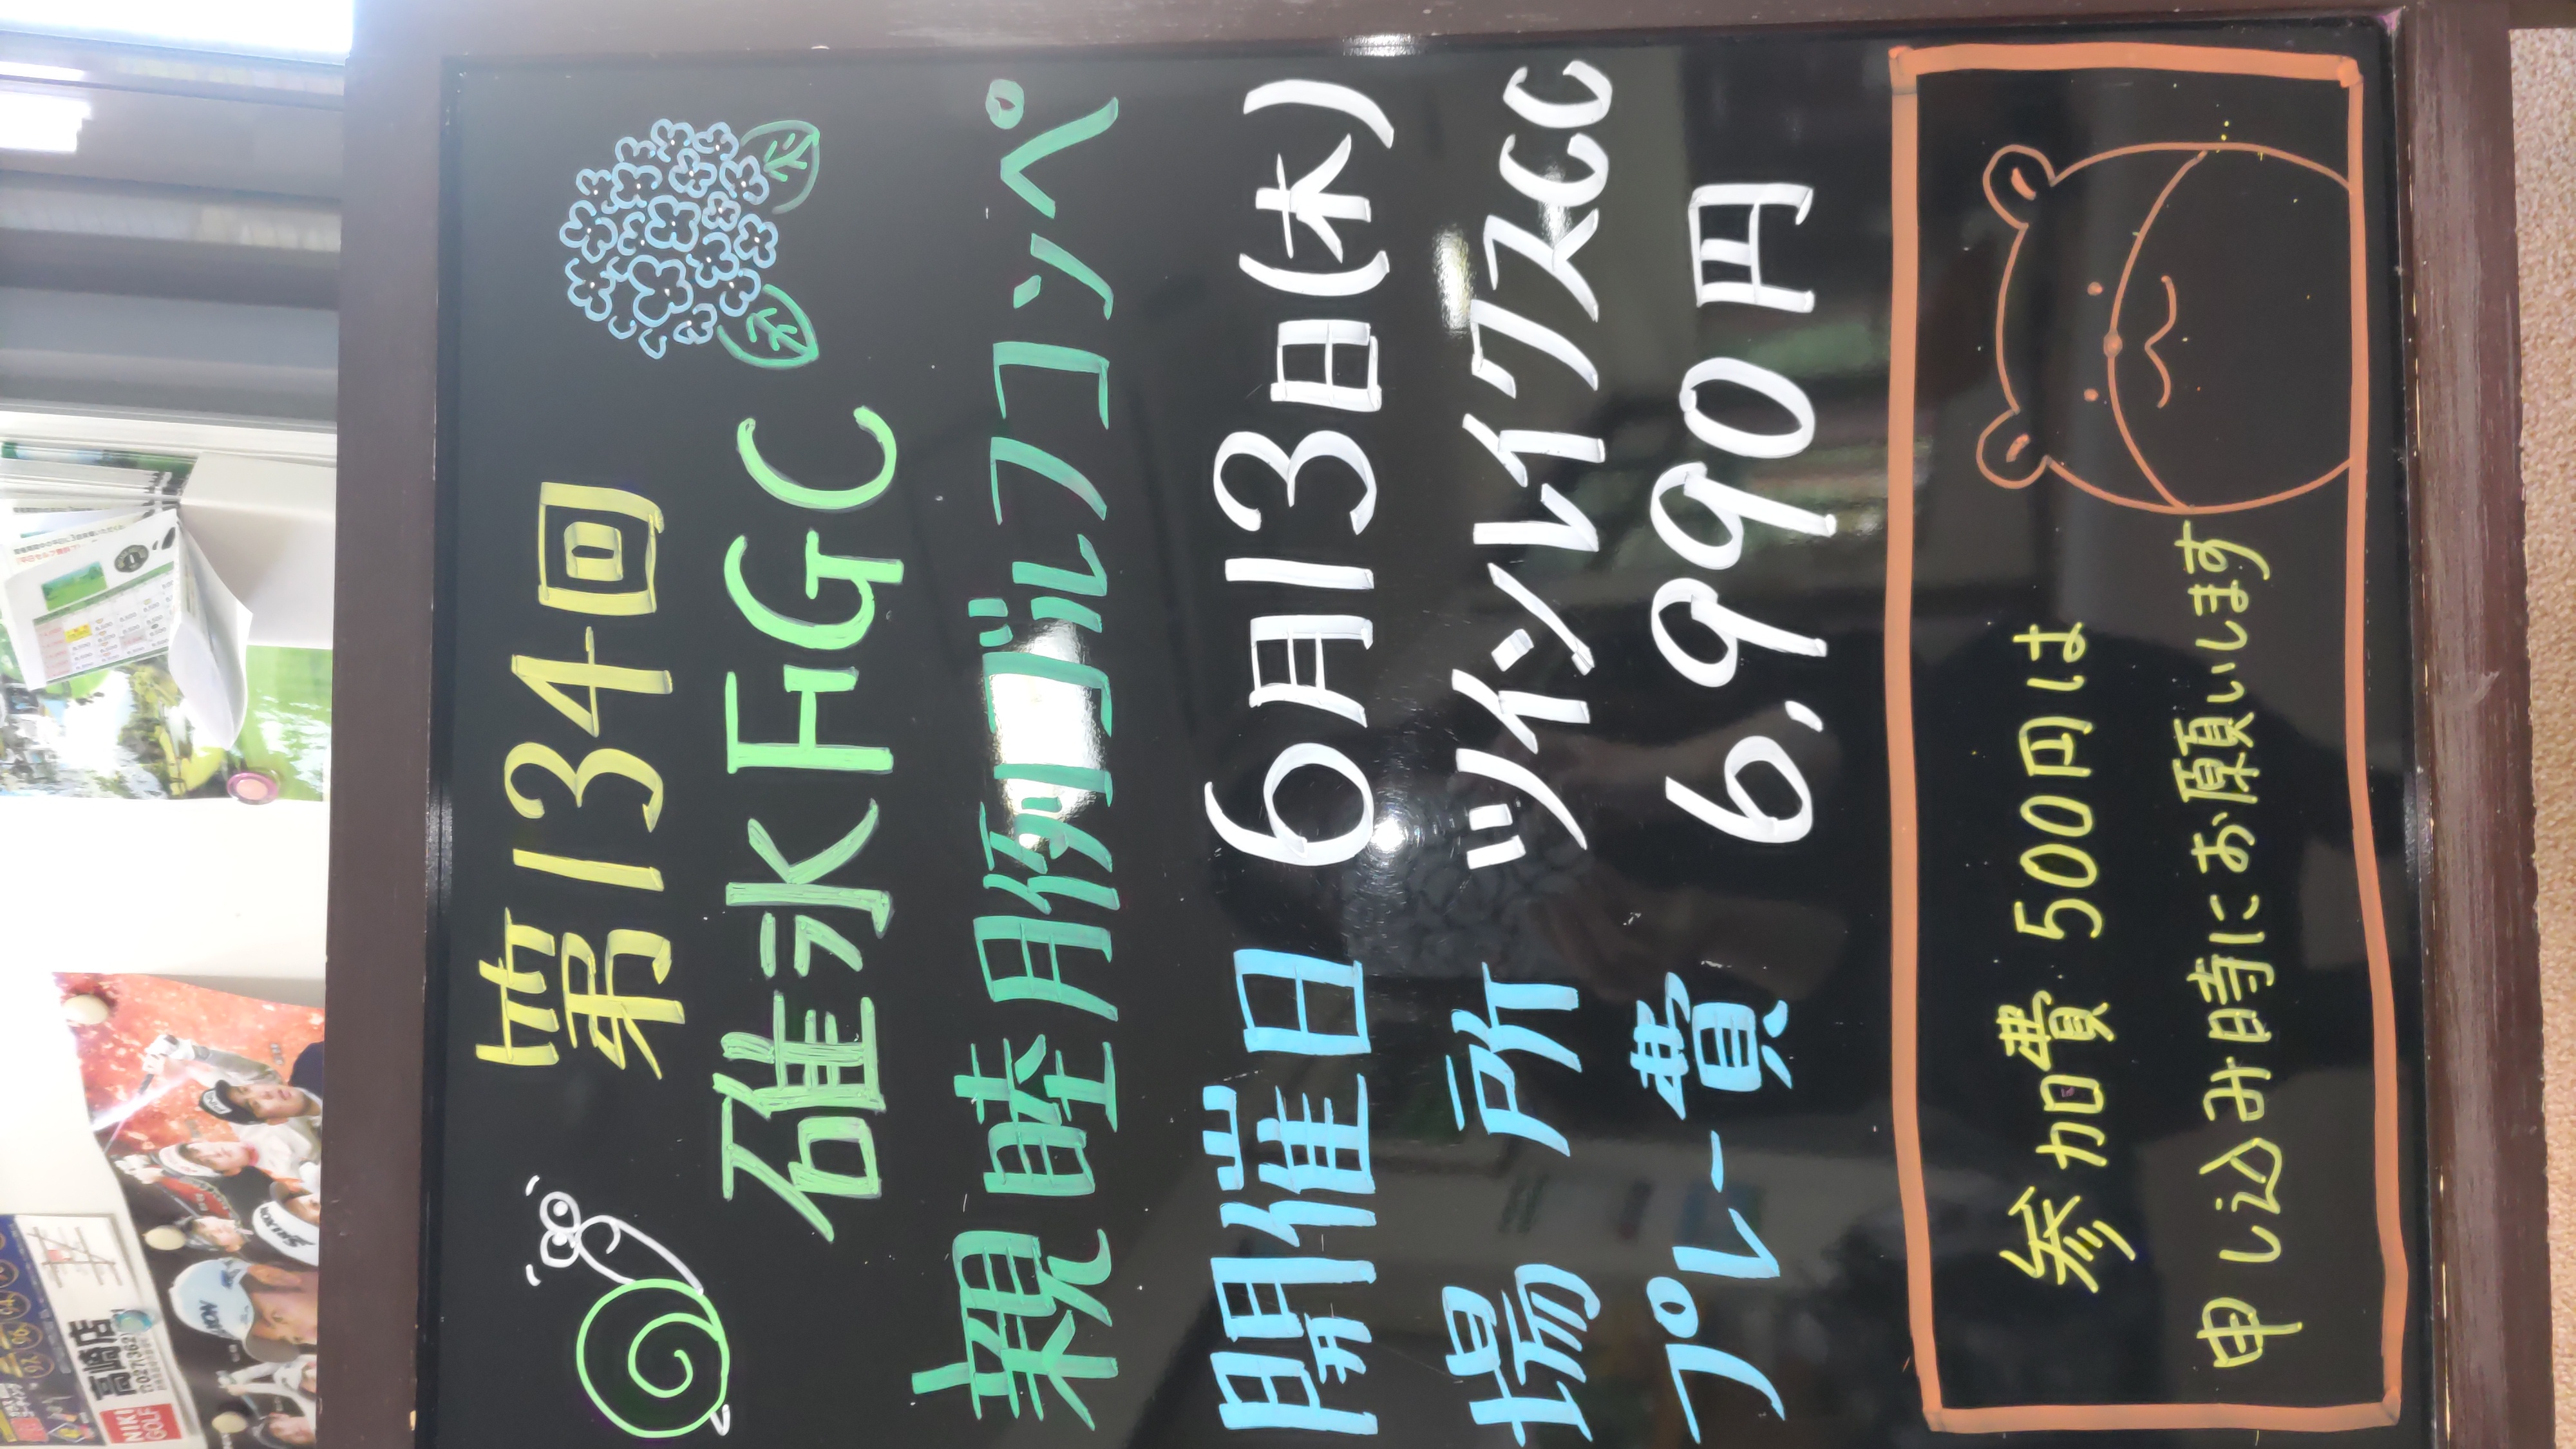 第134回
碓氷FGC
親睦月例ゴルフコンペ
開催日 6月13日(木)
場所 ツインレイクスCC
プレー費 6,990円
参加費500円は
申し込み時にお願いします
NIKI GOLF
高崎店
SRIXON